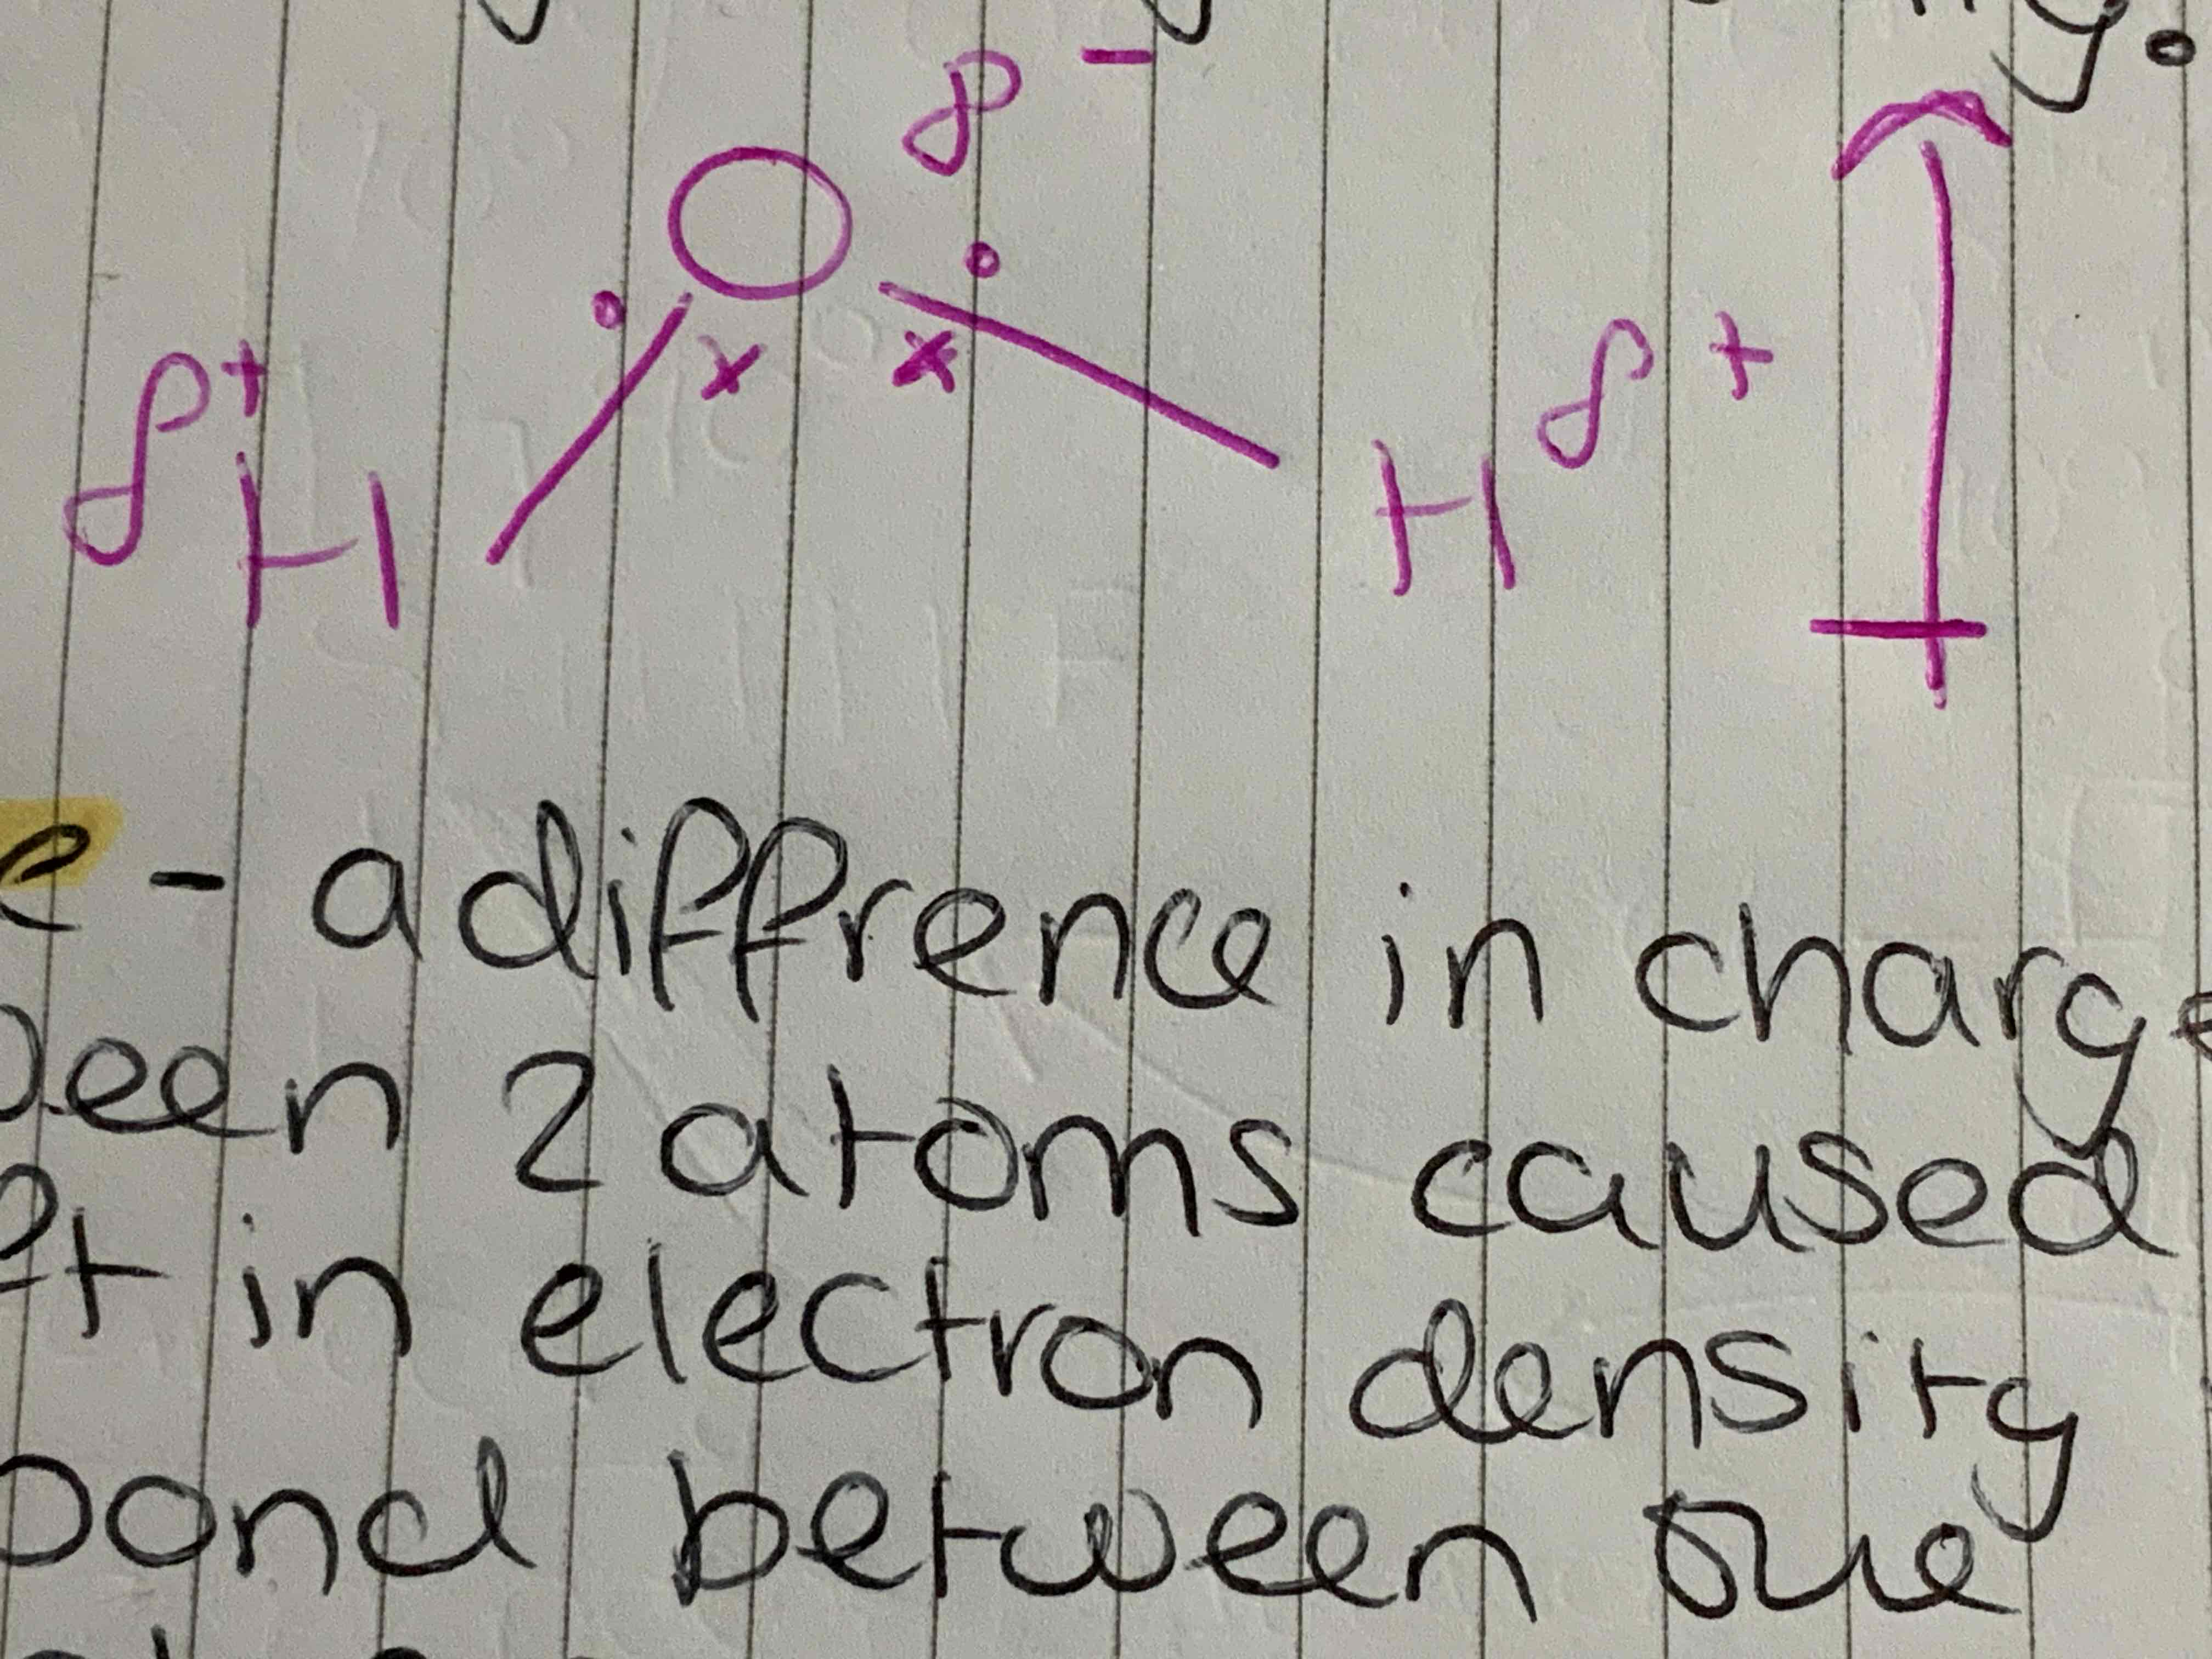 δ-
O
δ+ H
H δ+
e - a diffrence in charge
een 2 atoms caused
in electron density
bond between the